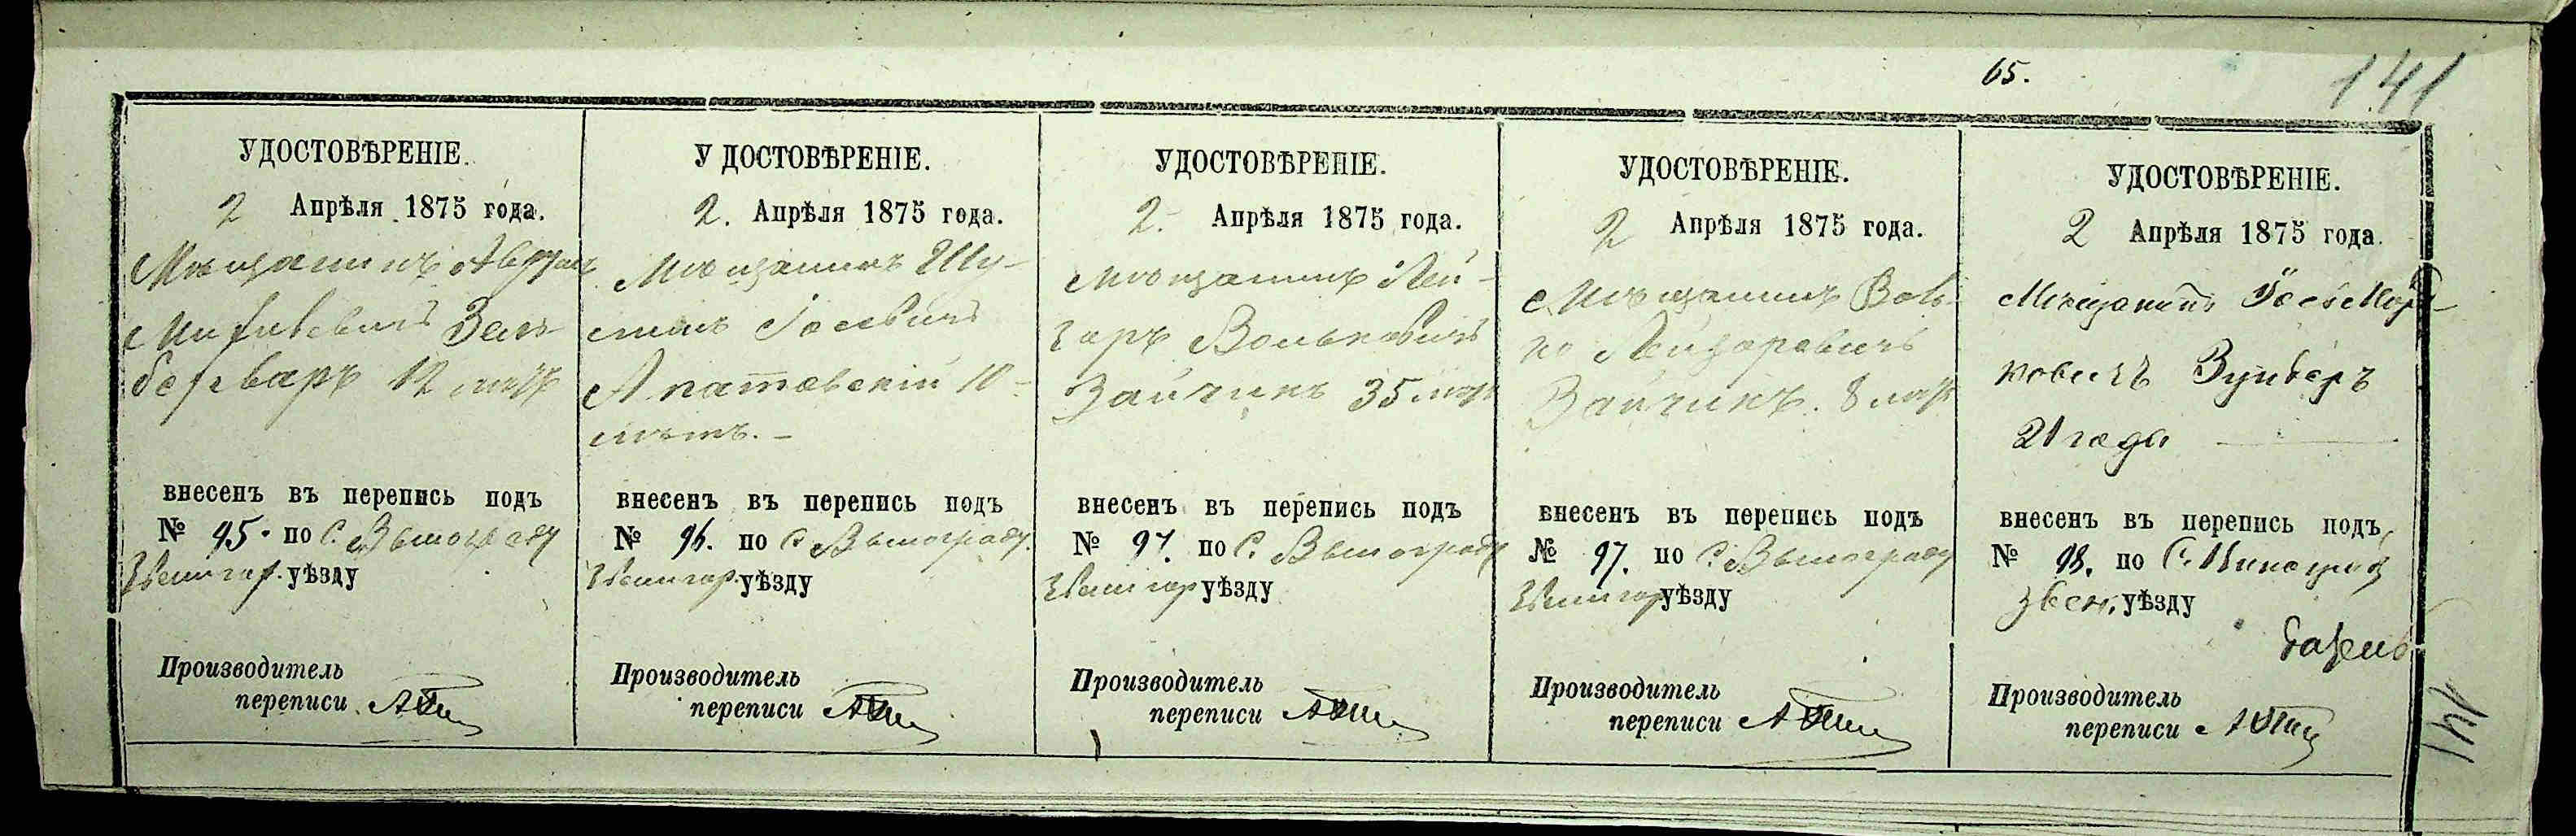 65.
141
УДОСТОВѢРЕНІЕ.
2 Апрѣля 1875 года.
Мѣщанинъ Аврумъ
Зель-
берваръ 12 лѣтъ
внесенъ въ перепись подъ
№ 95. по С. Вышограду
Звениг. уѣзду
Производитель
переписи
УДОСТОВѢРЕНІЕ.
2. Апрѣля 1875 года.
Мѣщанинъ Шу-
лимъ Іосевичъ
Апатовскій 10-
лѣтъ. -
внесенъ въ перепись подъ
№ 96. по С. Вышограду.
уѣзду
Производитель
переписи
УДОСТОВѢРЕНІЕ.
2. Апрѣля 1875 года.
Мѣщанинъ Лей-
заръ Вольковичъ
Зайчикъ 35 лѣтъ
внесенъ въ перепись подъ
№ 97. по С. Вышограду
уѣзду
Производитель
переписи
УДОСТОВѢРЕНІЕ.
2 Апрѣля 1875 года.
Мѣщанинъ Воль-
ко Лейзаровичъ
Зайчикъ. 8 лѣтъ
внесенъ въ перепись подъ
№ 97. по С. Вышограду
уѣзду
Производитель
переписи
УДОСТОВѢРЕНІЕ.
2 Апрѣля 1875 года.
Мѣщанинъ Іось Мор-
ковичъ Зунберъ
21 года
внесенъ въ перепись подъ
№ 98. по С.
Звен. уѣзду
Производитель
переписи
141